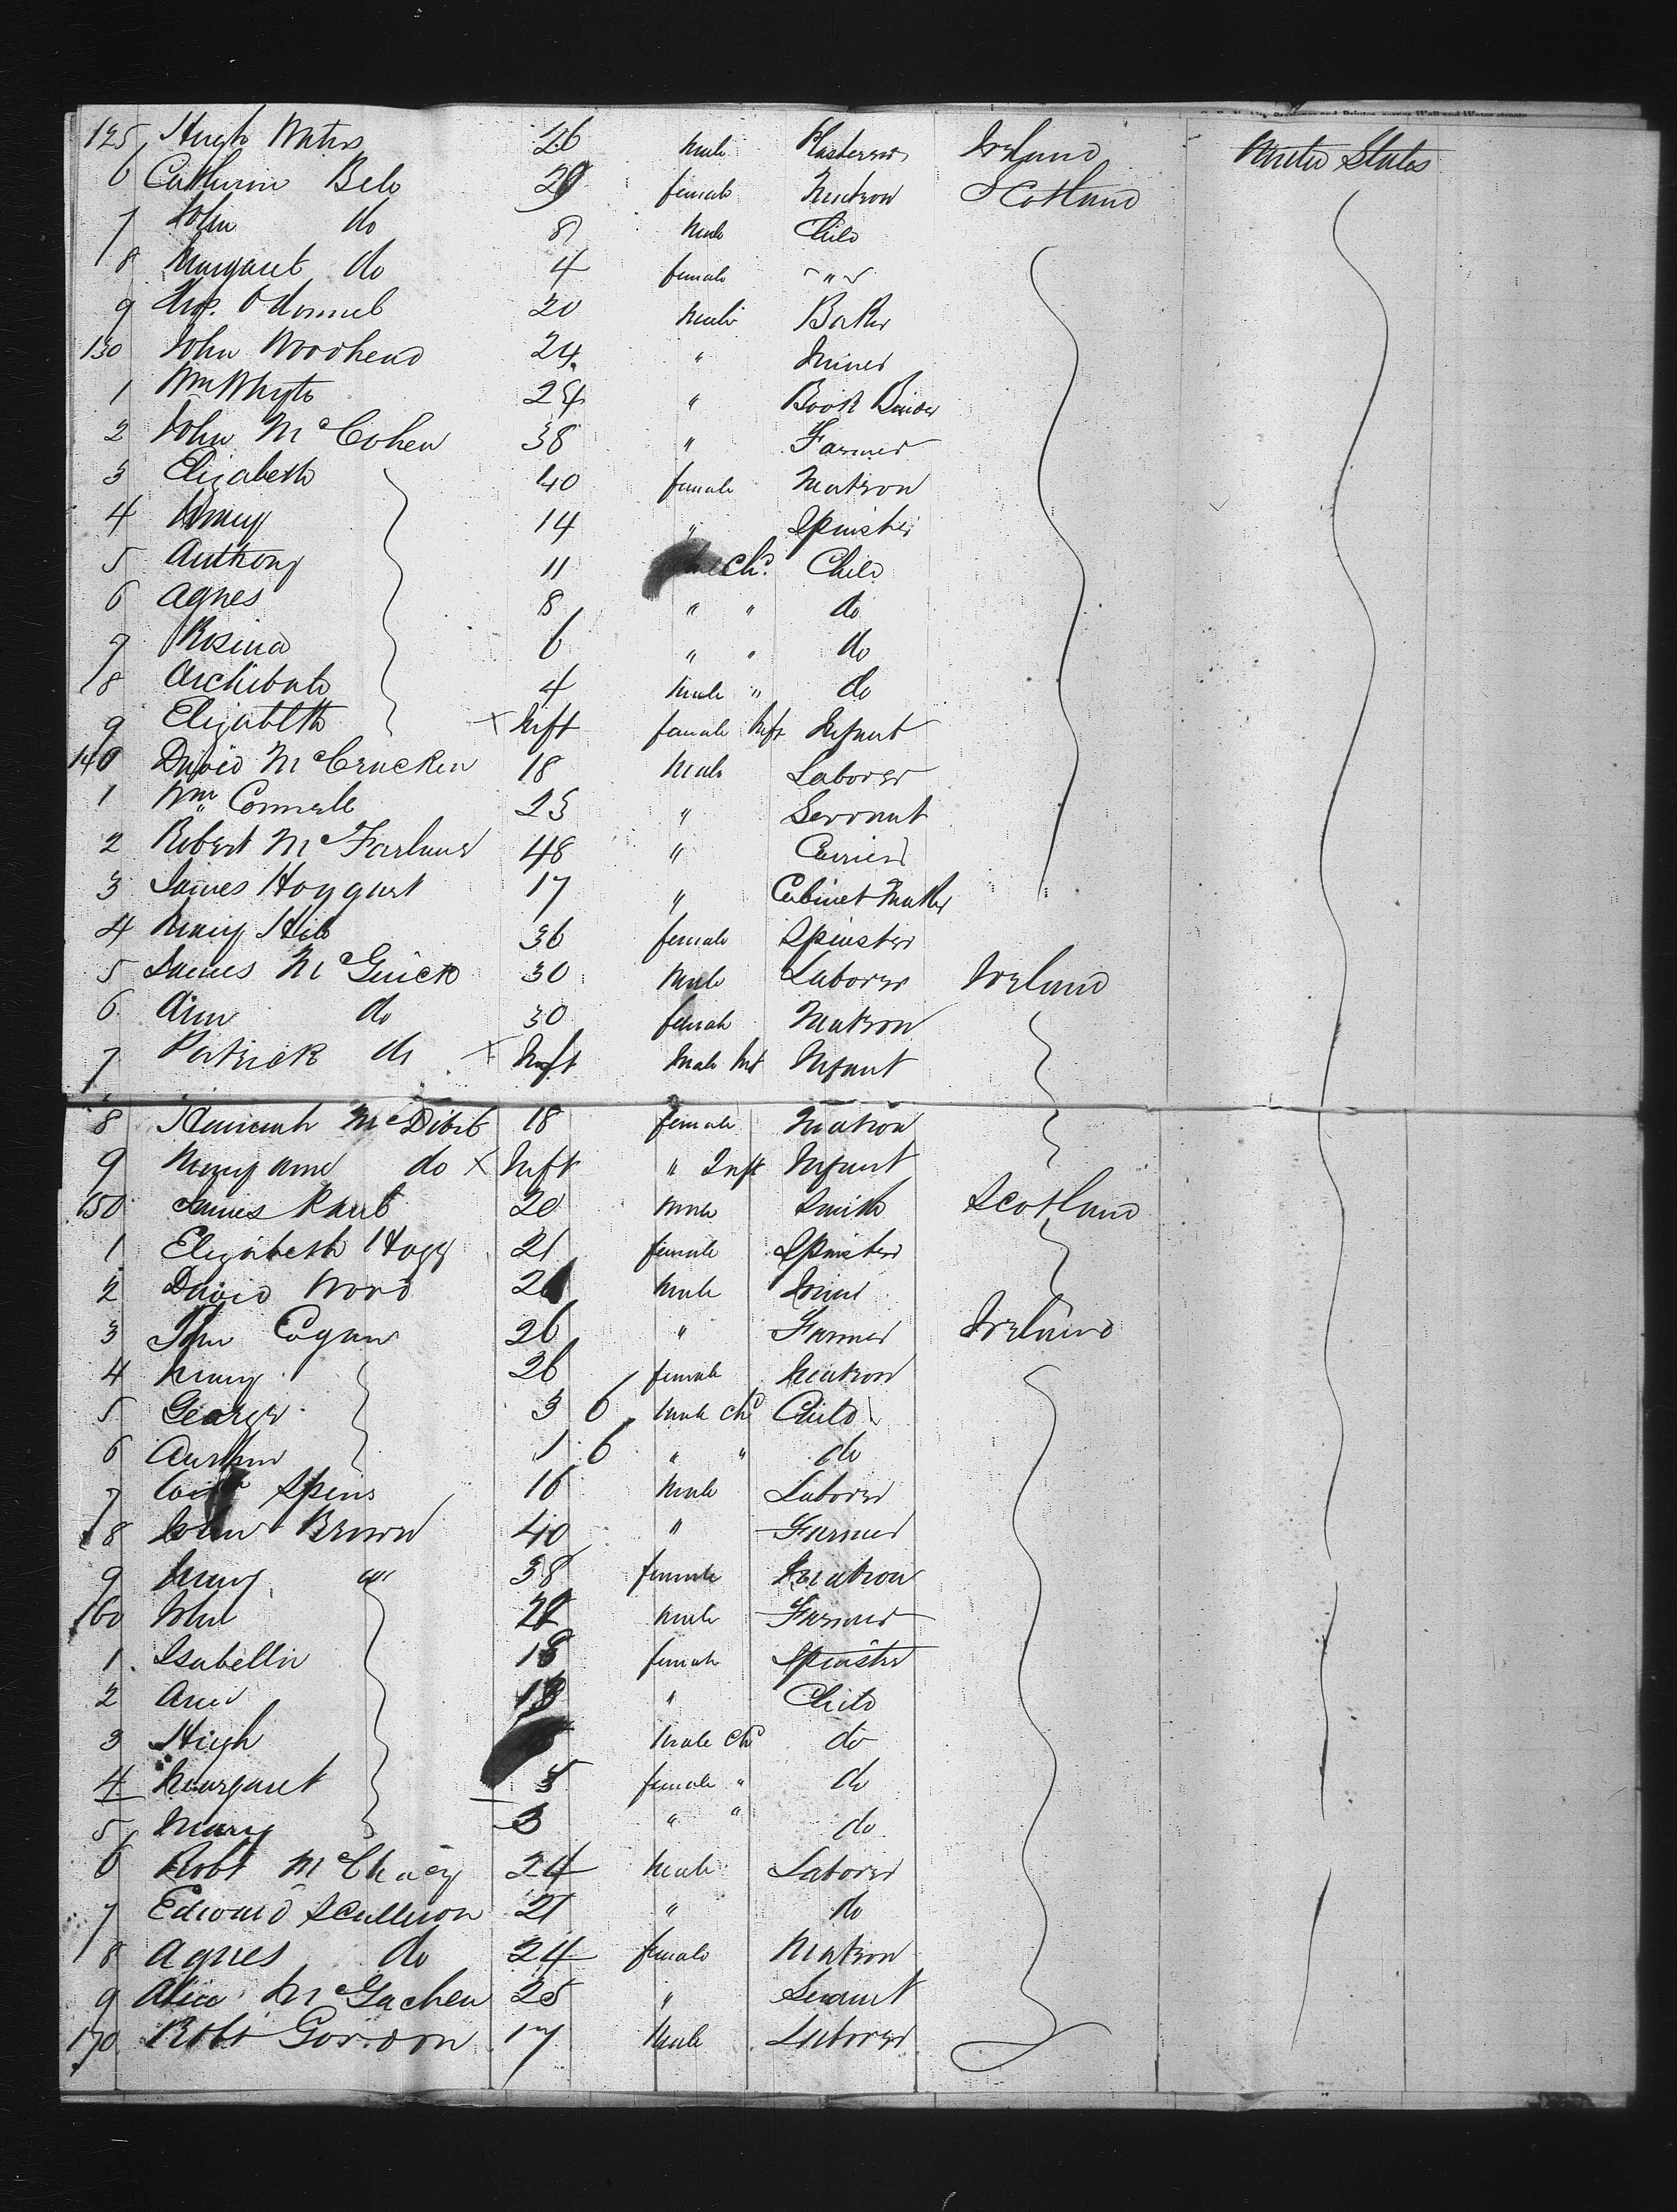 125 Hugh Waters 26 Male Plasterer Ireland United States
6 Catherine Bell 29 female Matron Scotland
7 John do 8 Male Child
8 Margaret do 4 female " "
9 Thos. O'Donnel 20 Male Baker
130 John Woodhead 24 " Joiner
1 Wm Whyte 24 " Book Binder
2 John McCohen 38 " Farmer
3 Elizabeth 40 female Matron
4 Mary 14 " Spinster
5 Anthony 11 Ch. Child
6 Agnes 8 " " do
7 Rosina 6 " " do
8 Archibald 4 Male " do
9 Elizabeth × Inft female Inft Infant
140 David McCracken 18 Male Laborer
1 Wm Connell 25 " Servant
2 Robert McFarland 48 " Currier
3 James Hoggart 17 " Cabinet Maker
4 Mary Hill 36 female Spinster
5 James McGuick 30 Male Laborer Ireland
6 Ann do 30 female Matron
7 Patrick do × Inft Male Inft Infant
8 Hannah 18 female Matron
9 Mary Ann do × Inft " Inft Infant
150 James 20 Male Smith Scotland
1 Elizabeth Hogg 21 female Spinster
2 David Wood Male Joiner
3 Cogan 26 " Farmer Ireland
4 Mary 26 female Matron
5 George 3 6 Male Chd Child
6 1 6 " " do
7 16 Male Laborer
8 John Brown 40 " Farmer
9 Mary 38 female Matron
160 John Male Farmer
1 Isabella 18 female Spinster
2 Ann " Child
3 Hugh Male Chd do
4 Margaret 5 female " do
5 Mary 3 " " do
6 Robt 24 Male Laborer
7 Edward Scullion 21 " do
8 Agnes do 24 female Matron
9 Alice McGachen 25 " Servant
170 Robt Gordon 17 Male Laborer